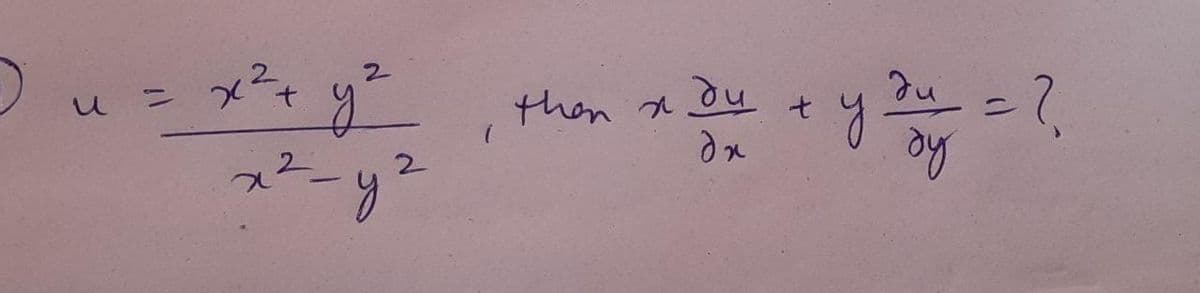 u = x²+ y² / x²-y² , then x ∂u/∂x + y ∂u/∂y = ?